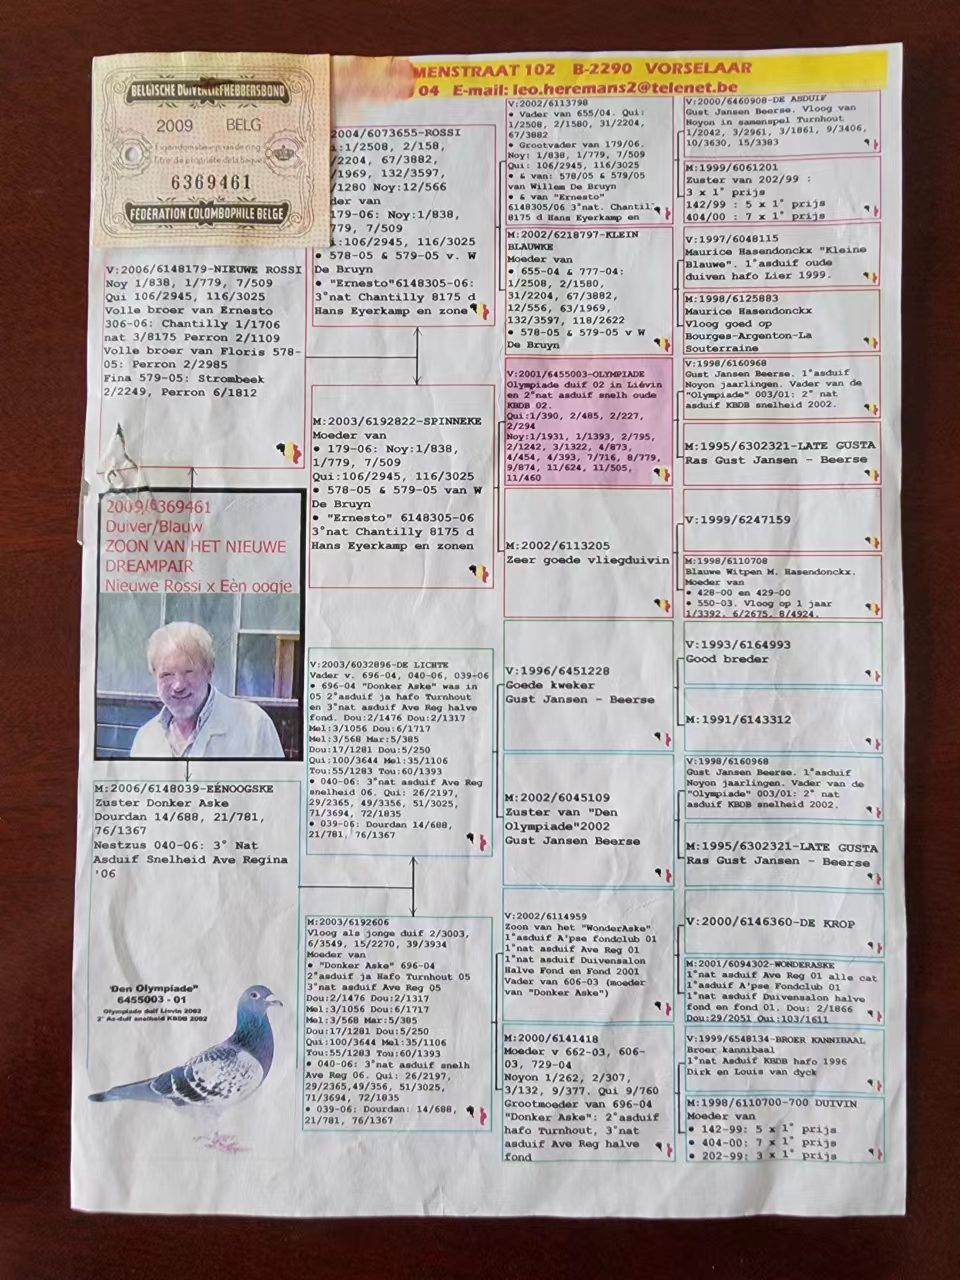 MENSTRAAT 102 B-2290 VORSELAAR
04 E-mail: leo.heremans2@telenet.be
BELGISCHE DUIVENLIEFHEBBERSBOND
2009 BELG
Eigendomsbewijs van de ring
Titre de propriété de la bague
6369461
FÉDÉRATION COLOMBOPHILE BELGE
V:2006/6148179-NIEUWE ROSSI
Noy 1/838, 1/779, 7/509
Qui 106/2945, 116/3025
Volle broer van Ernesto
306-06: Chantilly 1/1706
nat 3/8175 Perron 2/1109
Volle broer van Floris 578-
05: Perron 2/2985
Fina 579-05: Strombeek
2/2249, Perron 6/1812
2009/6369461
Duiver/Blauw
ZOON VAN HET NIEUWE
DREAMPAIR
Nieuwe Rossi x Eèn oogje
M:2006/6148039-EÉNOOGSKE
Zuster Donker Aske
Dourdan 14/688, 21/781,
76/1367
Nestzus 040-06: 3° Nat
Asduif Snelheid Ave Regina
'06
"Den Olympiade"
6455003 - 01
Olympiade duif Lievin 2002
2° As-duif snelheid KBDB 2002
2004/6073655-ROSSI
:1/2508, 2/158,
/2204, 67/3882,
/1969, 132/3597,
/1280 Noy:12/566
der van
179-06: Noy:1/838,
779, 7/509
i:106/2945, 116/3025
• 578-05 & 579-05 v. W
De Bruyn
• "Ernesto"6148305-06:
3°nat Chantilly 8175 d
Hans Eyerkamp en zone
M:2003/6192822-SPINNEKE
Moeder van
• 179-06: Noy:1/838,
1/779, 7/509
Qui:106/2945, 116/3025
• 578-05 & 579-05 van W
De Bruyn
• "Ernesto" 6148305-06
3°nat Chantilly 8175 d
Hans Eyerkamp en zonen
V:2003/6032896-DE LICHTE
Vader v. 696-04, 040-06, 039-06
• 696-04 "Donker Aske" was in
05 2°asduif ja hafo Turnhout
en 3°nat asduif Ave Reg halve
fond. Dou:2/1476 Dou:2/1317
Mel:3/1056 Dou:6/1717
Mel:3/568 Mar:5/385
Dou:17/1281 Dou:5/250
Qui:100/3644 Mel:35/1106
Tou:55/1283 Tou:60/1393
• 040-06: 3°nat asduif Ave Reg
snelheid 06. Qui: 26/2197,
29/2365, 49/3356, 51/3025,
71/3694, 72/1835
• 039-06: Dourdan 14/688,
21/781, 76/1367
M:2003/6192606
Vloog als jonge duif 2/3003,
6/3549, 15/2270, 39/3934
Moeder van
• "Donker Aske" 696-04
2°asduif ja Hafo Turnhout 05
3°nat asduif Ave Reg 05
Dou:2/1476 Dou:2/1317
Mel:3/1056 Dou:6/1717
Mel:3/568 Mar:5/385
Dou:17/1281 Dou:5/250
Qui:100/3644 Mel:35/1106
Tou:55/1283 Tou:60/1393
• 040-06: 3°nat asduif snelh
Ave Reg 06. Qui: 26/2197,
29/2365,49/356, 51/3025,
71/3694, 72/1835
• 039-06: Dourdan: 14/688,
21/781, 76/1367
V:2002/6113798
• Vader van 655/04. Qui:
1/2508, 2/1580, 31/2204,
67/3882
• Grootvader van 179/06.
Noy: 1/838, 1/779, 7/509
Qui: 106/2945, 116/3025
• & van: 578/05 & 579/05
van Willem De Bruyn
• & van "Ernesto"
6148305/06 3°nat. Chantil
8175 d Hans Eyerkamp en
M:2002/6218797-KLEIN
BLAUWKE
Moeder van
• 655-04 & 777-04:
1/2508, 2/1580,
31/2204, 67/3882,
12/556, 63/1969,
132/3597, 118/2622
• 578-05 & 579-05 v W
De Bruyn
V:2001/6455003-OLYMPIADE
Olympiade duif 02 in Liévin
en 2°nat asduif snelh oude
KBDB 02.
Qui:1/390, 2/485, 2/227,
2/294
Noy:1/1931, 1/1393, 2/795,
2/1242, 3/1322, 4/873,
4/454, 4/393, 7/716, 8/779,
9/874, 11/624, 11/505,
11/460
M:2002/6113205
Zeer goede vliegduivin
V:1996/6451228
Goede kweker
Gust Jansen - Beerse
M:2002/6045109
Zuster van "Den
Olympiade"2002
Gust Jansen Beerse
V:2002/6114959
Zoon van het "WonderAske"
1°asduif A'pse fondclub 01
1°nat asduif Ave Reg 01
1°nat asduif Duivensalon
Halve Fond en Fond 2001
Vader van 606-03 (moeder
van "Donker Aske")
M:2000/6141418
Moeder v 662-03, 606-
03, 729-04
Noyon 1/262, 2/307,
3/132, 9/377. Qui 9/760
Grootmoeder van 696-04
"Donker Aske": 2°asduif
hafo Turnhout, 3°nat
asduif Ave Reg halve
fond
V:2000/6460908-DE ASDUIF
Gust Jansen Beerse. Vloog van
Noyon in samenspel Turnhout
1/2042, 3/2961, 3/1861, 9/3406,
10/3630, 15/3383
M:1999/6061201
Zuster van 202/99 :
3 x 1° prijs
142/99 : 5 x 1° prijs
404/00 : 7 x 1° prijs
V:1997/6048115
Maurice Hasendonckx "Kleine
Blauwe". 1°asduif oude
duiven hafo Lier 1999.
M:1998/6125883
Maurice Hasendonckx
Vloog goed op
Bourges-Argenton-La
Souterraine
V:1998/6160968
Gust Jansen Beerse. 1°asduif
Noyon jaarlingen. Vader van de
"Olympiade" 003/01: 2° nat
asduif KBDB snelheid 2002.
M:1995/6302321-LATE GUSTA
Ras Gust Jansen - Beerse
V:1999/6247159
M:1998/6110708
Blauwe Witpen M. Hasendonckx.
Moeder van
• 428-00 en 429-00
• 550-03. Vloog op 1 jaar
1/3392, 6/2675, 8/4924.
V:1993/6164993
Good breder
M:1991/6143312
V:1998/6160968
Gust Jansen Beerse. 1°asduif
Noyon jaarlingen. Vader van de
"Olympiade" 003/01: 2° nat
asduif KBDB snelheid 2002.
M:1995/6302321-LATE GUSTA
Ras Gust Jansen - Beerse
V:2000/6146360-DE KROP
M:2001/6094302-WONDERASKE
1°nat asduif Ave Reg 01 alle cat
1°asduif A'pse Fondclub 01
1°nat asduif Duivensalon halve
fond en fond 01. Dou: 2/1866
Dou:29/2051 Qui:103/1611
V:1999/6548134-BROER KANNIBAAL
Broer kannibaal
1°nat Asduif KBDB hafo 1996
Dirk en Louis van dyck
M:1998/6110700-700 DUIVIN
Moeder van
• 142-99: 5 x 1° prijs
• 404-00: 7 x 1° prijs
• 202-99: 3 x 1° prijs